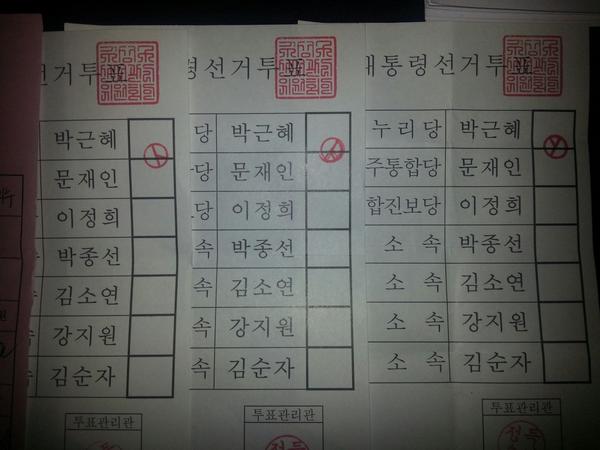 선거투표
박근혜
문재인
이정희
박종선
김소연
강지원
김순자
투표관리관
령선거투표
당 박근혜
당 문재인
당 이정희
속 박종선
속 김소연
속 강지원
속 김순자
투표관리관
대통령선거투표
누리당 박근혜
주통합당 문재인
합진보당 이정희
소 속 박종선
소 속 김소연
소 속 강지원
소 속 김순자
투표관리관